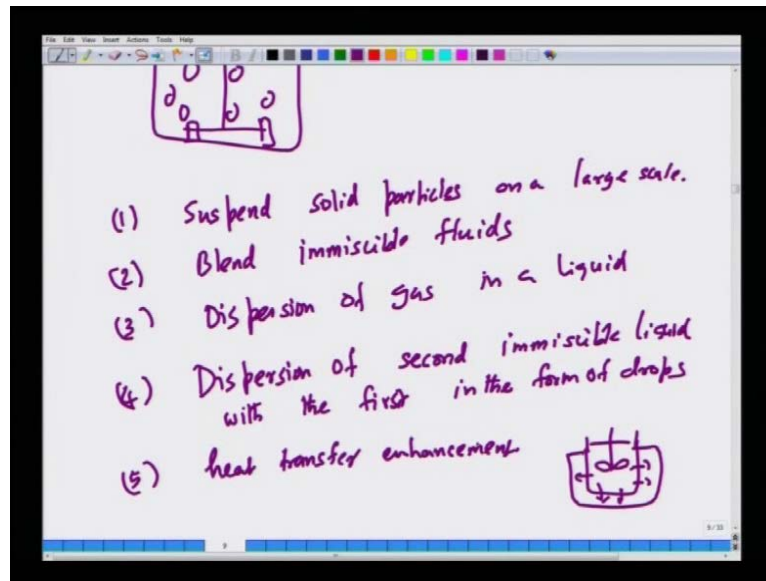 File Edit View Insert Actions Tools Help
(1) Suspend solid particles on a large scale.
(2) Blend immiscible fluids
(3) Dispersion of gas in a liquid
(4) Dispersion of second immiscible liquid
with the first in the form of drops
(5) heat transfer enhancement
9/33
9